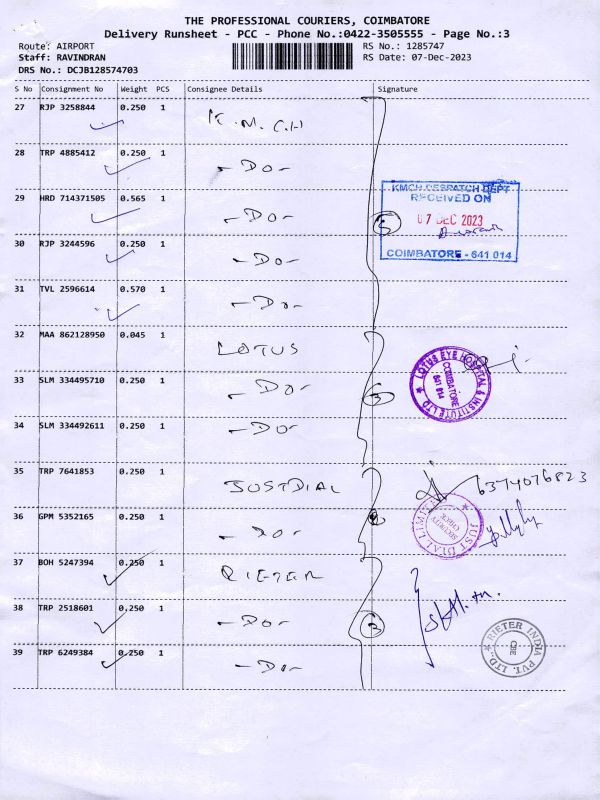 THE PROFESSIONAL COURIERS, COIMBATORE
Delivery Runsheet - PCC - Phone No.:0422-3505555 - Page No.:3
Route: AIRPORT RS No.: 1285747
Staff: RAVINDRAN RS Date: 07-Dec-2023
DRS No.: DCJB128574703
S No Consignment No Weight PCS Consignee Details Signature
27 RJP 3258844 0.250 1 K.M.C.H
28 TRP 4885412 0.250 1 -DO-
KMCH DESPATCH DEPT
RECEIVED ON
29 HRD 714371505 0.565 1 -DO- 5 07 DEC 2023
30 RJP 3244596 0.250 1 -DO- COIMBATORE - 641 014
31 TVL 2596614 0.570 1 -DO-
32 MAA 862128950 0.045 1 LOTUS
33 SLM 334495710 0.250 1 -DO- 3 LOTUS EYE HOSPITAL & INSTITUTE LTD COIMBATORE 641 014
34 SLM 334492611 0.250 1 -DO-
35 TRP 7641853 0.250 1 JUSTDIAL 6374076823
36 GPM 5352165 0.250 1 -DO- 2 JUST DIAL LIMITED SECURITY CHECK
37 BOH 5247394 0.250 1 RIETER
38 TRP 2518601 0.250 1 -DO- 3
39 TRP 6249384 0.250 1 -DO- RIETER INDIA PVT. LTD. CBE